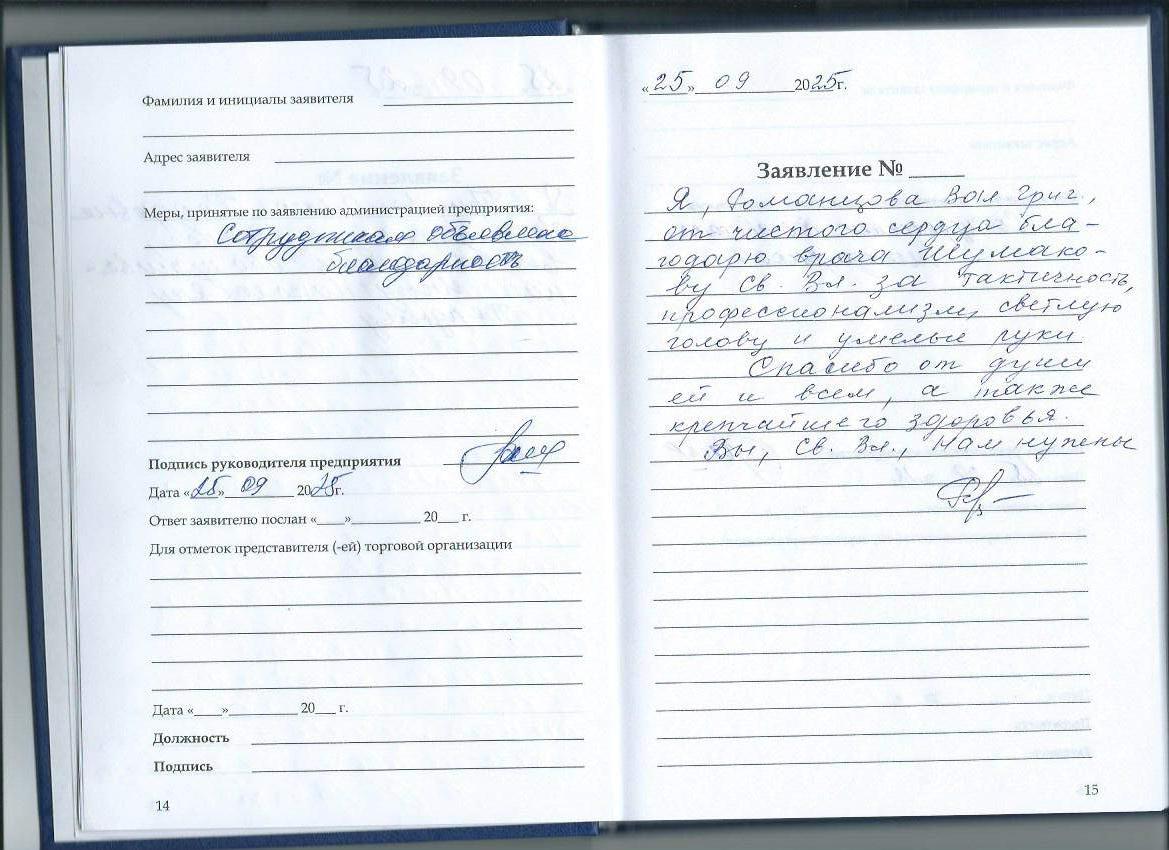 Фамилия и инициалы заявителя
Адрес заявителя
Меры, принятые по заявлению администрацией предприятия:
Сотрудникам объявлена
благодарность
Подпись руководителя предприятия
Дата «25» 09 2025г.
Ответ заявителю послан «____»__________ 20___ г.
Для отметок представителя (-ей) торговой организации
Дата «____»__________ 20___ г.
Должность
Подпись
14
«25» 09 2025г.
Заявление № _____
Я, Романцова Вал Григ,
от чистого сердца бла-
годарю врача Шумако-
ву Св. Вл. за тактичность,
профессионализм, светлую
голову и умелые руки
Спасибо от души
ей и всем, а также
крепчайшего здоровья.
Вы, Св. Вл., нам нужны
15